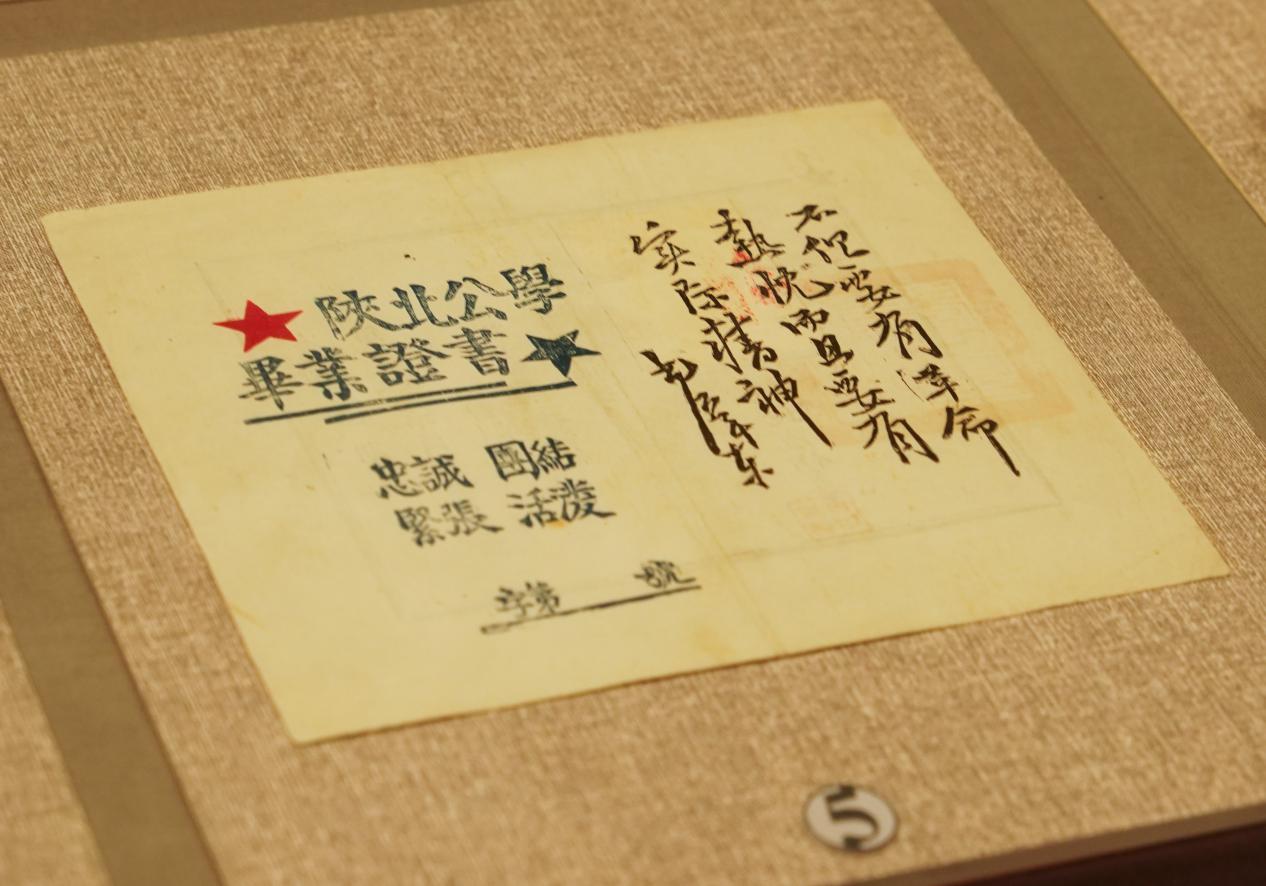 陝北公學
畢業證書
忠誠 團結
緊張 活潑
字第 號
不但要有革命
熱忱而且要有
实际精神
毛泽东
5